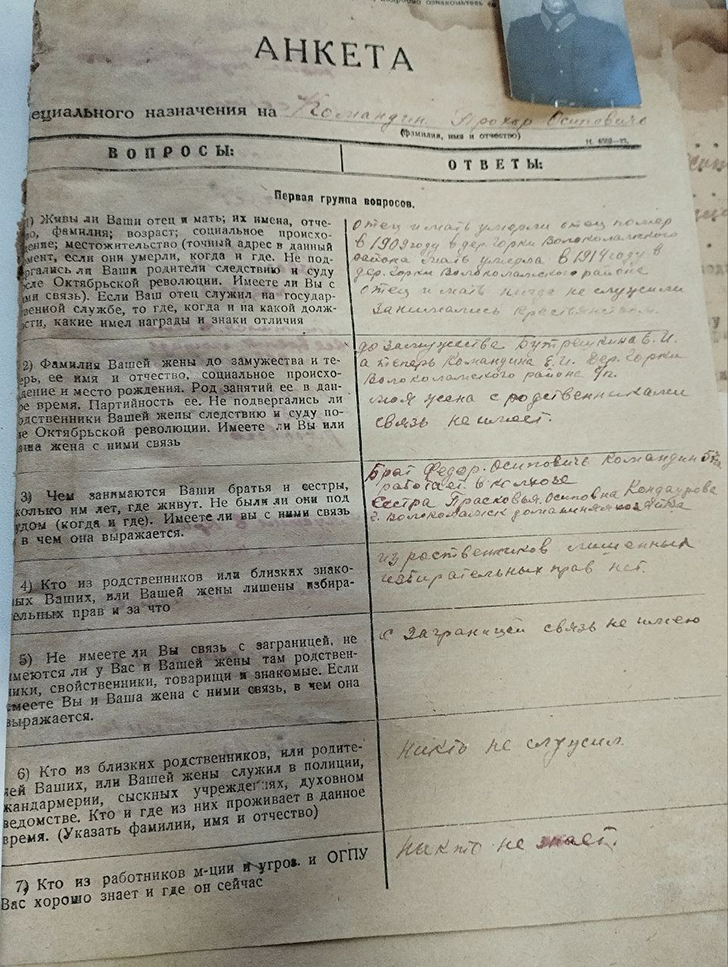 АНКЕТА
ециального назначения на Командин Прохор Осипович
(фамилия, имя и отчество)
ВОПРОСЫ:
ОТВЕТЫ:
Первая группа вопросов.
1) Живы ли Ваши отец и мать; их имена, отче-
во, фамилия; возраст; социальное происхо-
ение; местожительство (точный адрес в данный
мент, если они умерли, когда и где. Не под-
ргались ли Ваши родители следствию и суду
сле Октябрьской революции. Имеете ли Вы с
ми связь). Если Ваш отец служил на государ-
венной службе, то где, когда и на какой долж-
сти, какие имел награды и знаки отличия
отец и мать умерли отец помер
в 1909 году в дер. Горки Волоколамского
района мать умерла в 1914 году в
дер. Горки Волоколамского района
отец и мать нигде не служили
занимались крестьянством.
2) Фамилия Вашей жены до замужества и те-
рь, ее имя и отчество, социальное происхо-
дение и место рождения. Род занятий ее в дан-
ое время. Партийность ее. Не подвергались ли
одственники Вашей жены следствию и суду по-
ле Октябрьской революции. Имеете ли Вы или
аша жена с ними связь
до замужества Бутрешкина Е. И.
а теперь Командина Е. И. дер. Горки
Волоколамского района
моя жена с родственниками
связь не имеет.
3) Чем занимаются Ваши братья и сестры,
колько им лет, где живут. Не были ли они под
удом (когда и где). Имеете ли вы с ними связь
в чем она выражается.
Брат Федор Осипович Командин
работает в колхозе
Сестра Прасковья Осиповна Кондаурова
г. Волоколамск домашняя
4) Кто из родственников или близких знако-
ых Ваших, или Вашей жены лишены избира-
ельных прав и за что
из роственников лишенных
избирательных прав нет.
5) Не имеете ли Вы связь с заграницей, не
имеются ли у Вас и Вашей жены там родствен-
ники, свойственники, товарищи и знакомые. Если
имеете Вы и Ваша жена с ними связь, в чем она
выражается.
с заграницей связь не имею
6) Кто из близких родственников, или родите-
лей Ваших, или Вашей жены служил в полиции,
жандармерии, сыскных учреждениях, духовном
ведомстве. Кто и где из них проживает в данное
время. (Указать фамилии, имя и отчество)
никто не служил.
7) Кто из работников м-ции и угроз. и ОГПУ
Вас хорошо знает и где он сейчас
никто не знает.